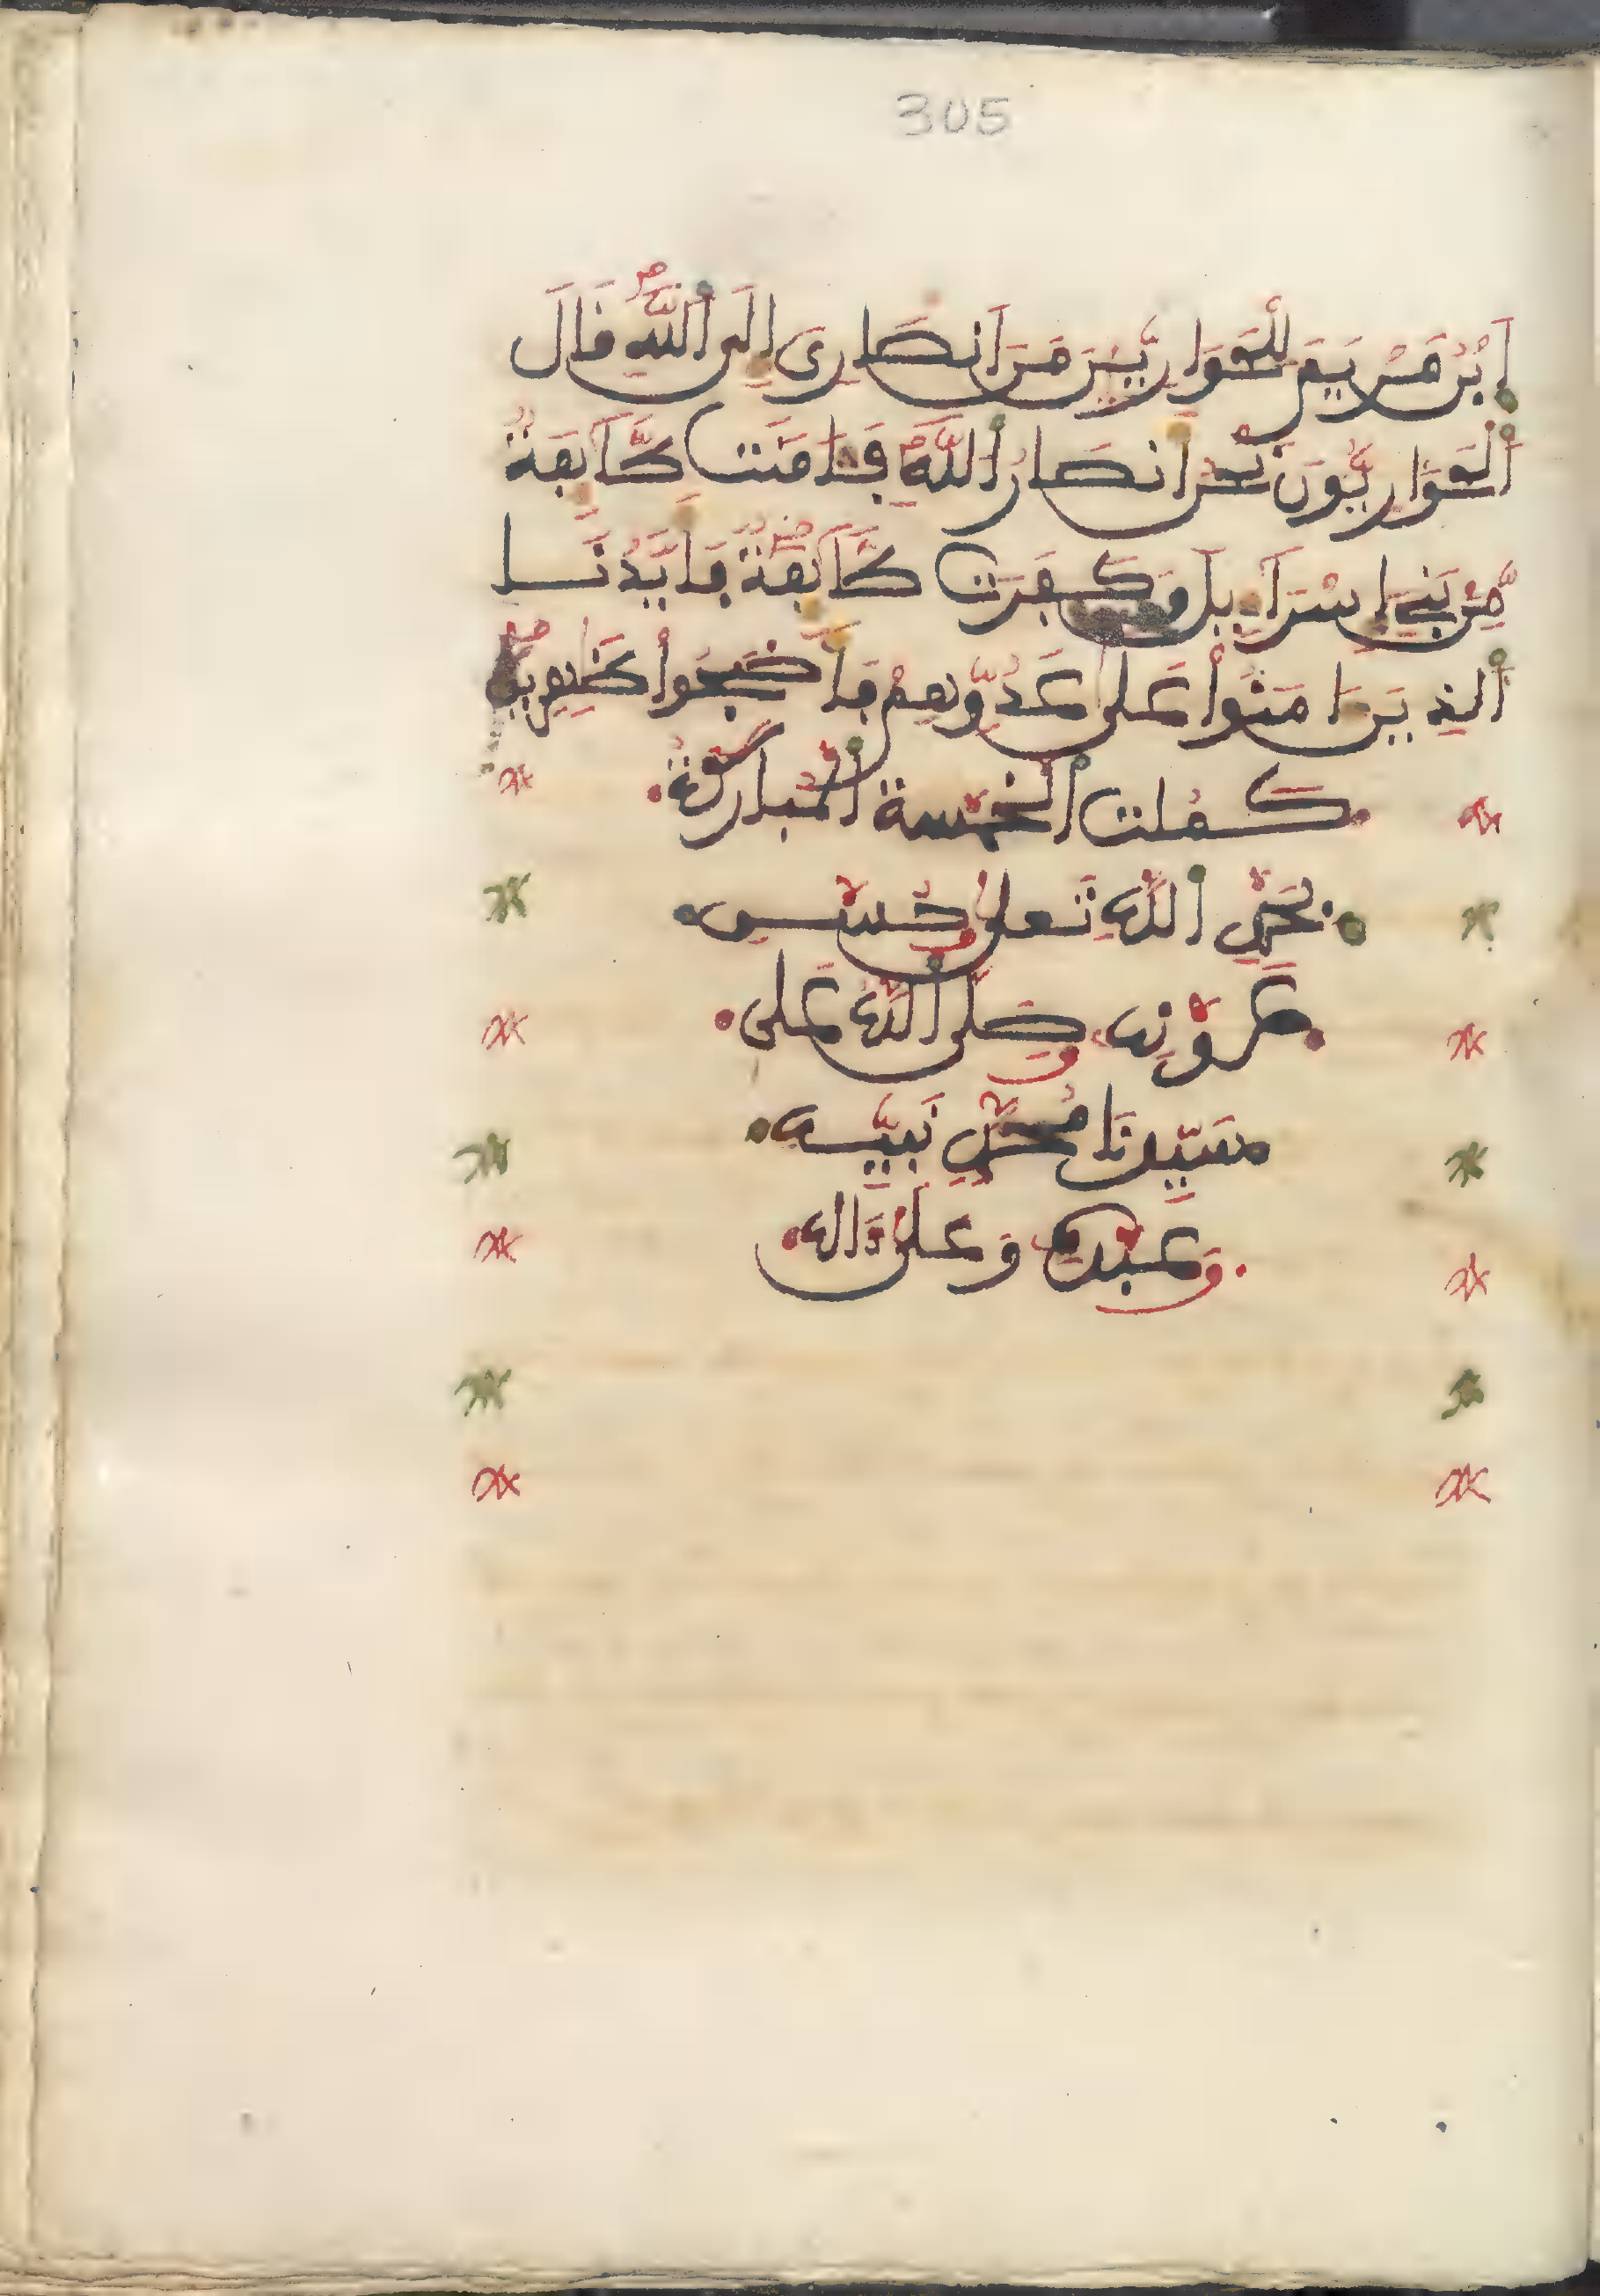 305
اَبْنُ مَرْيَمَ لِلْحَوَارِيِّينَ مَنَ اَنصَارِىَ إِلَى اَللَّهِ قَالَ
اَلْحَوَارِيُّونَ نَحْنُ أَنصَارُ اُللَّهِ فَـَٔامَنَت طَّآئِفَةٌ
مِّنۢ بَنِىٓ إِسْرَآءِيلَ وَكَفَرَت طَّآئِفَةٌ فَأَيَّدْنَا
اَلذِينَ ءَامَنُواْ عَلَىٰ عَدُوِّهِمْ فَأَصْبَحُواْ ظَٰهِرِينَ
كملت الخمسة المباركة
بحمد الله تعلى وحسن
عونه وصلى الله على
سيدنا محمد نبيه
وعبده وعلى ءاله